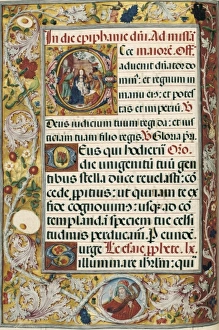 In die epiphanie dñi. Ad missã
Ecce
advenit dñator do
minus: et regnum in
manu ei9: et potes
tas et imperiũ. V
Deus iudicium tuum regi da: et ius
ticiam tuam filio regis. V Gloria pr̃i.
Deus qui hodierna Oro
die unigenitũ tuũ gen
tibus stella duce revelasti: cõ
cede, ppitius: ut qui iam te ex
fide cognovim9: usq3 ad cõ
templandã speciem tue celsi
tudinis perducam̃. P eundẽ.
Surge Lc̃o isaie, pphete. lx.
illuminare ihrlm: qui